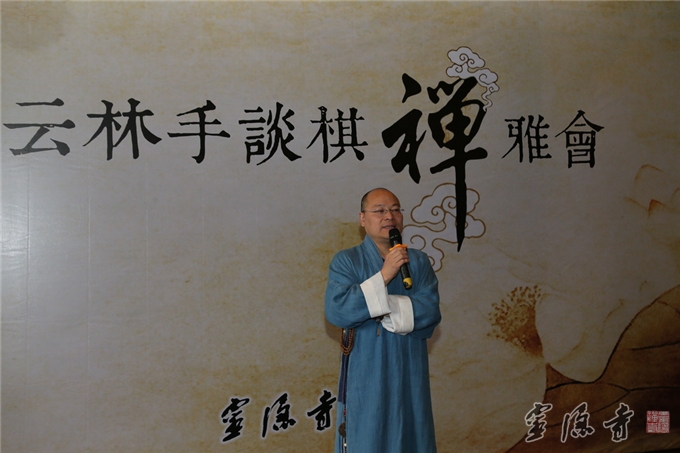 云林手談棋禪雅會
靈隐寺
靈隐寺